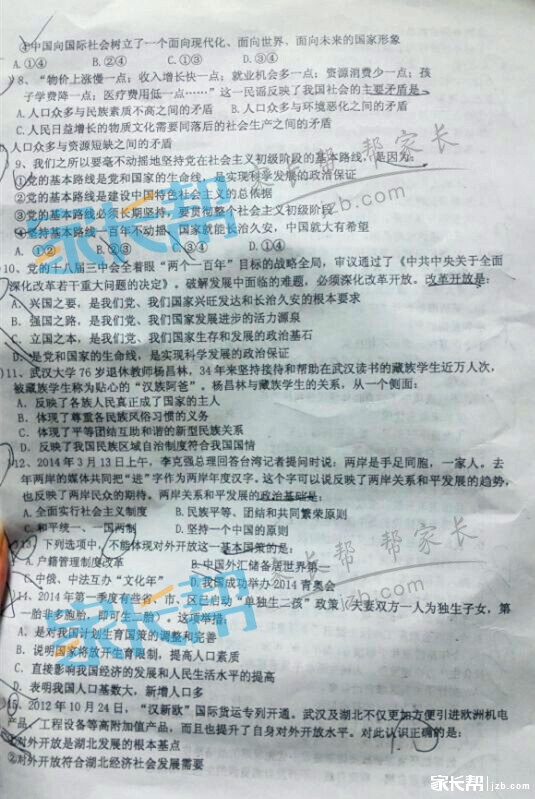 ④中国向国际社会树立了一个面向现代化、面向世界、面向未来的国家形象
A.①④ B.②④ C.①③ D.③④
8、“物价上涨慢一点；收入增长快一点；就业机会多一点；资源消费少一点；孩
子学费降一点；医疗费用低一点……”这一民谣反映了我国社会的主要矛盾是
A.人口众多与民族素质不高之间的矛盾 B.人口众多与环境恶化之间的矛盾
C.人民日益增长的物质文化需要同落后的社会生产之间的矛盾
人口众多与资源短缺之间的矛盾
9、我们之所以要毫不动摇地坚持党在社会主义初级阶段的基本路线，是因为：
①党的基本路线是党和国家的生命线，是实现科学发展的政治保证
②党的基本路线是建设中国特色社会主义的总依据
③党的基本路线必须长期坚持，要贯彻整个社会主义初级阶段
④坚持基本路线一百年不动摇，国家就能长治久安，中国就大有希望
A. ①② B.②③ C.③④ D.①④
10、党的十八届三中会全着眼“两个一百年”目标的战略全局，审议通过了《中共中央关于全面
深化改革若干重大问题的决定》。破解发展中面临的难题，必须深化改革开放。改革开放是：
A、兴国之要，是我们党、我们国家兴旺发达和长治久安的根本要求
B、强国之路，是我们党、我们国家发展进步的活力源泉
C、立国之本，是我们党、我们国家生存和发展的政治基石
D、是党和国家的生命线，是实现科学发展的政治保证
11、武汉大学76岁退休教师杨昌林，34年来坚持接待和帮助在武汉读书的藏族学生近万人次，
被藏族学生称为贴心的“汉族阿爸”。杨昌林与藏族学生的关系，从一个侧面：
A．反映了各族人民真正成了国家的主人
B．体现了尊重各民族风俗习惯的义务
C．体现了平等团结互助和谐的新型民族关系
D．反映了我国民族区域自治制度符合我国国情
12、2014年3月13日上午，李克强总理回答台湾记者提问时说：两岸是手足同胞，一家人。去
年两岸的媒体共同把“进”字作为两岸年度汉字。这个字可以说反映了两岸关系和平发展的趋势，
也反映了两岸民众的期待。两岸关系和平发展的政治基础是：
A.全面实行社会主义制度 B.民族平等、团结和共同繁荣原则
C.和平统一、一国两制 D.坚持一个中国的原则
13、下列选项中，不能体现对外开放这一基本国策的是：
A.户籍管理制度改革 B.中国外汇储备居世界第一
C.中俄、中法互办“文化年” D.我国成功举办2014青奥会
14、2014年第一季度有些省、市、区已启动“单独生二孩”政策（夫妻双方一人为独生子女，第
一胎非多胞胎，即可生二胎）。这项举措：
A．是对我国计划生育国策的调整和完善
B．说明国家将放开生育限制，提高人口素质
C．直接影响我国经济的发展和人民生活水平的提高
D．表明我国人口基数大，新增人口多
15、2012年10月24日，“汉新欧”国际货运专列开通。武汉及湖北不仅更加方便引进欧洲机电
产品、工程设备等高附加值产品，而且也提升了自身对外开放水平。对此认识正确的是：
①对外开放是湖北发展的根本基点
②对外开放符合湖北经济社会发展需要
家长帮 帮家长
jzb.com
家长帮
帮家长
jzb.com
家长帮
家长帮 | jzb.com